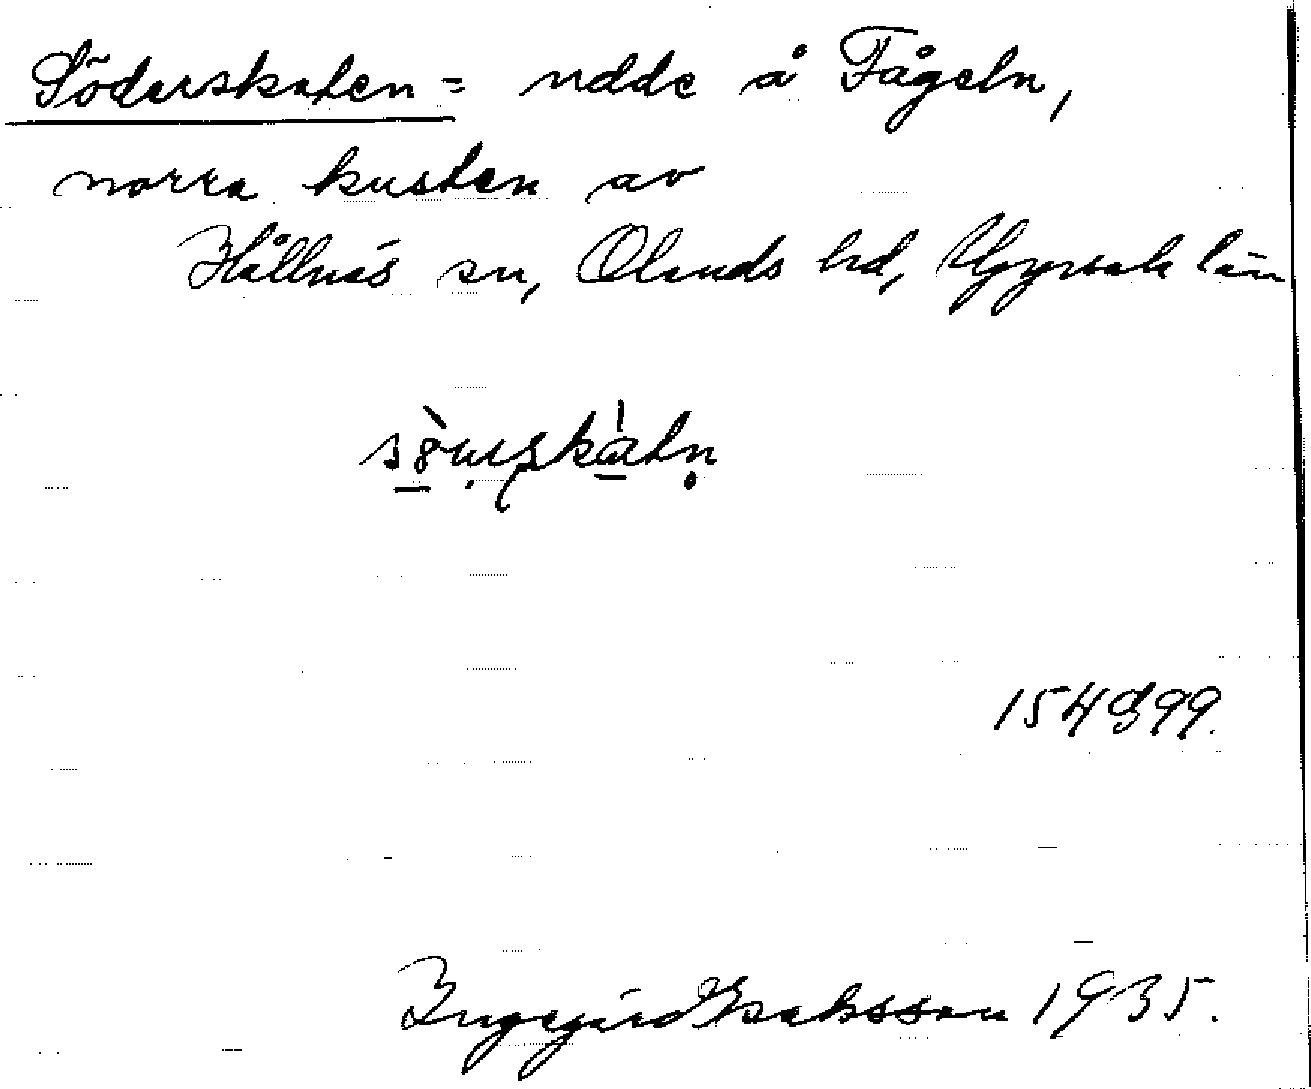 Söderskaten = udde å Fågeln,
norra kusten av
Hållnäs sn, Olands hd, Uppsala län
154899.
Ingegärd Isaksson 1935.